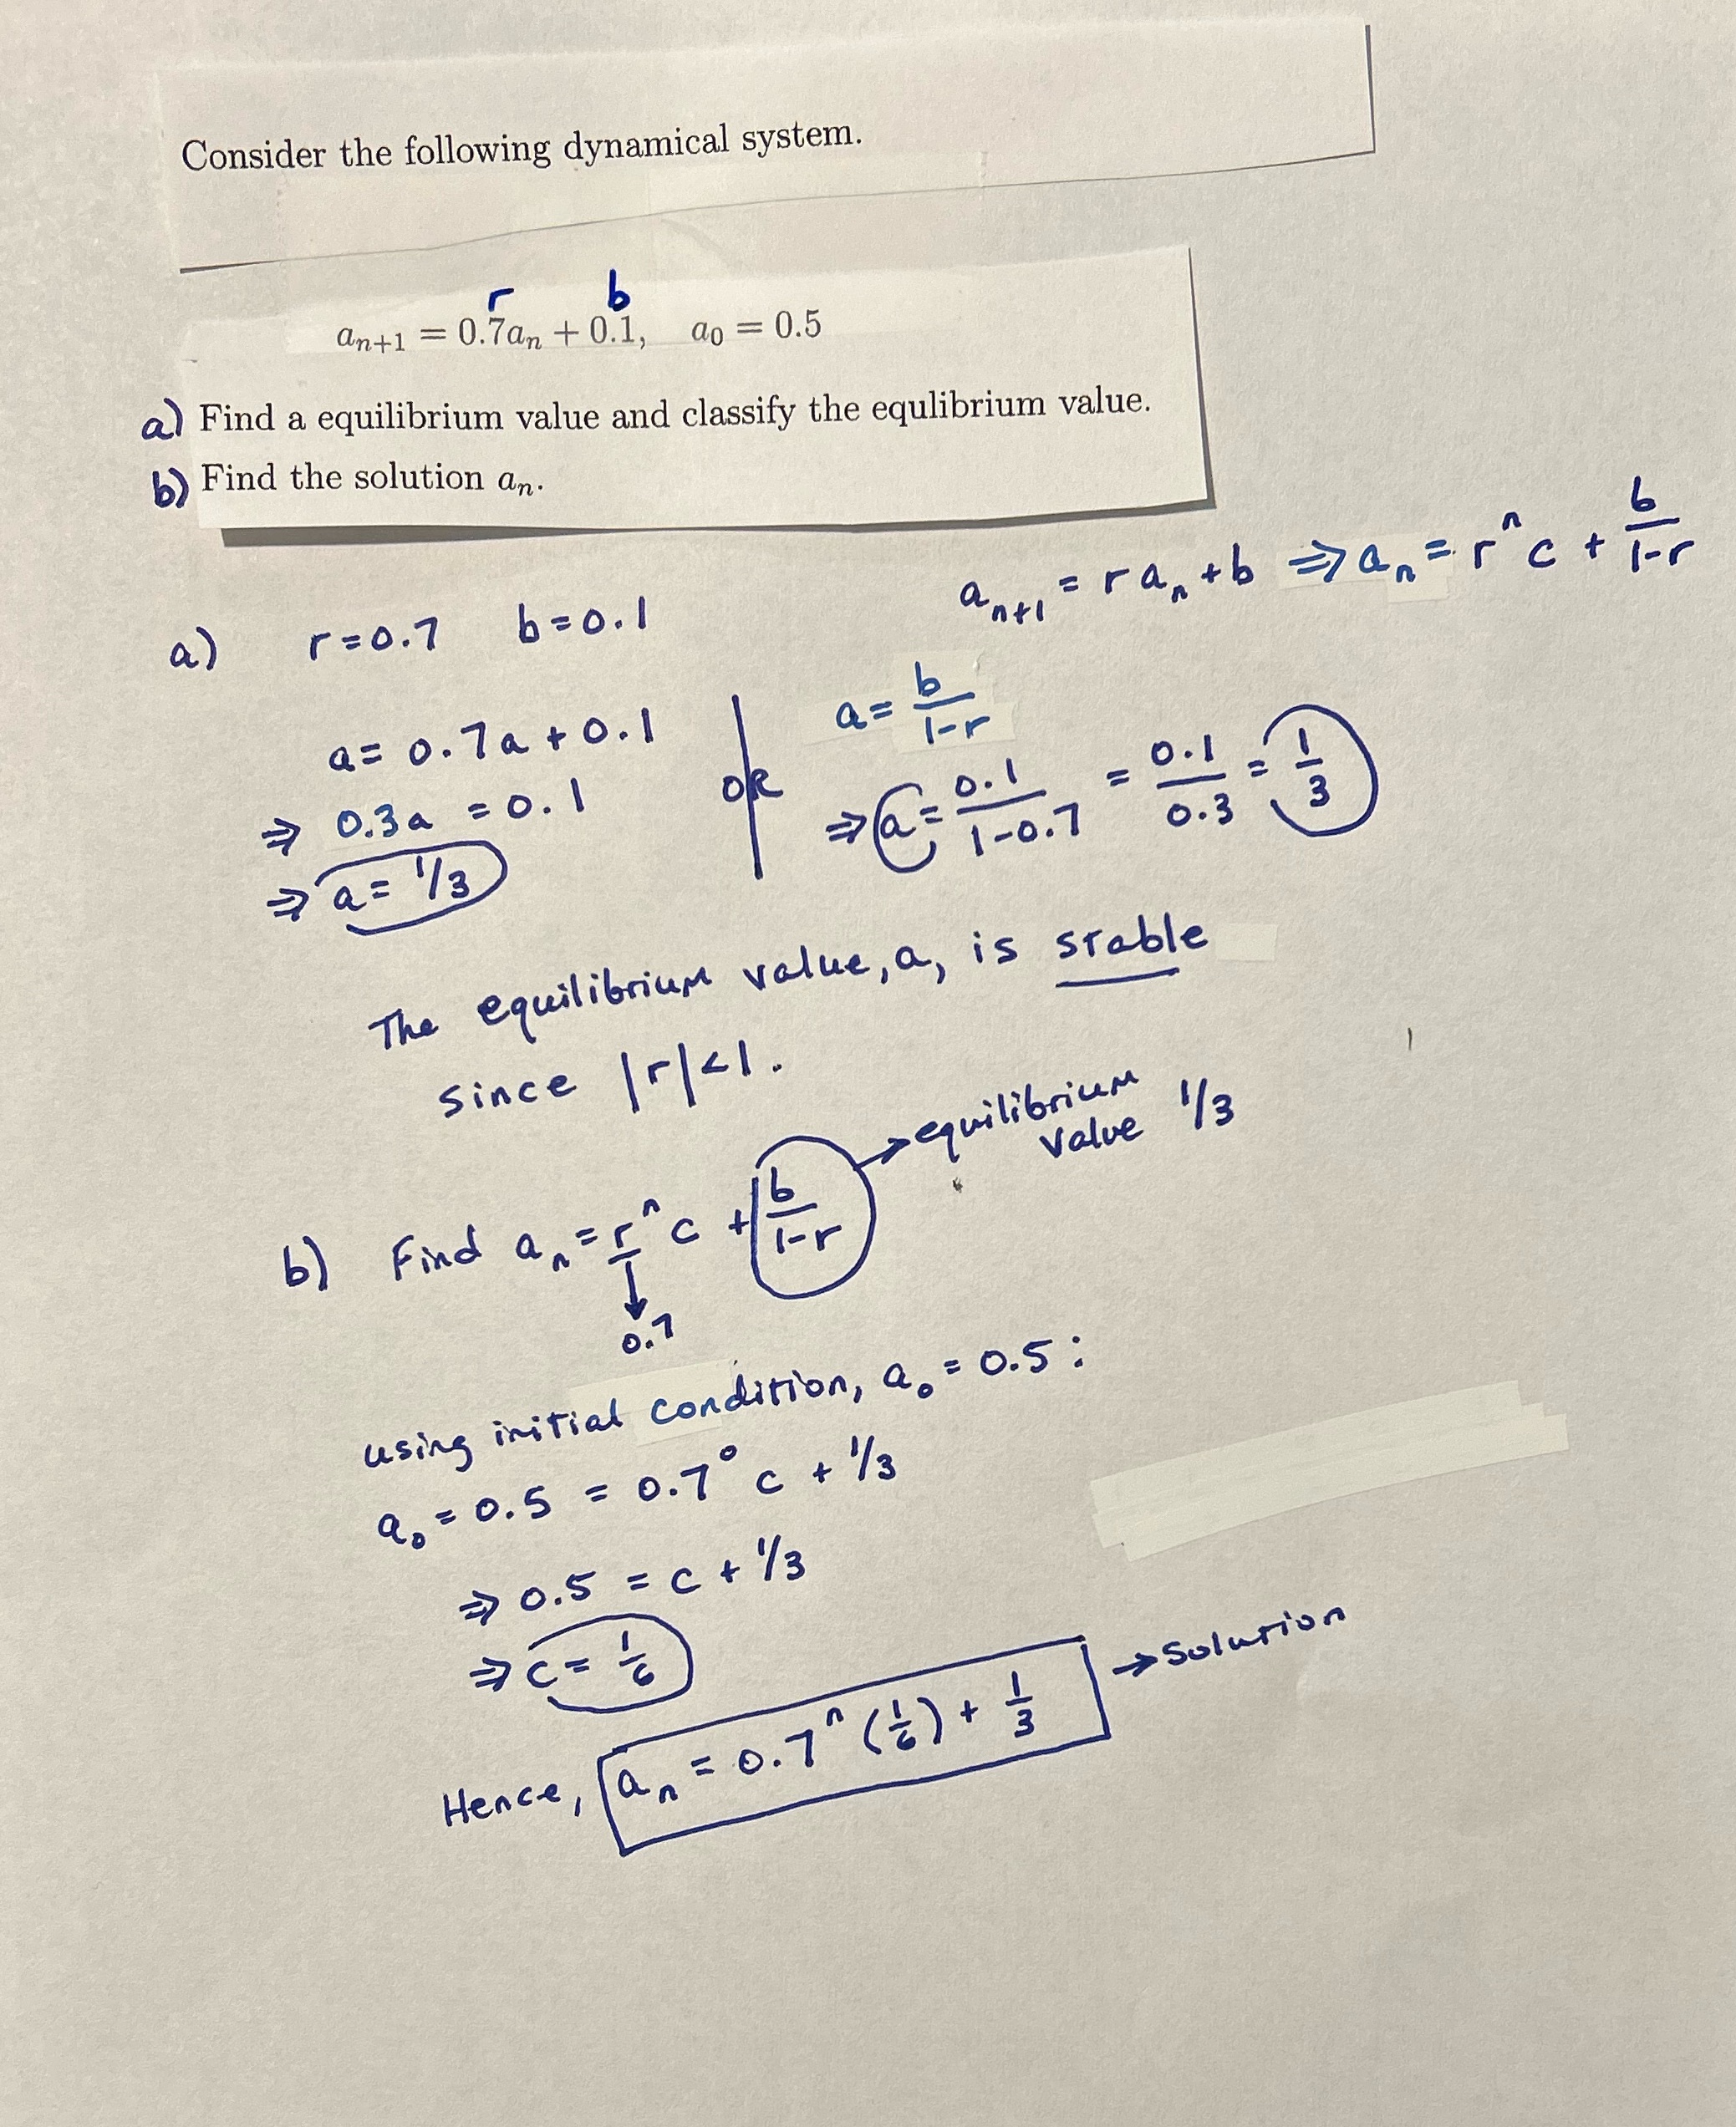 Consider the following dynamical system.
r b
aₙ₊₁ = 0.7aₙ + 0.1, a₀ = 0.5
a) Find a equilibrium value and classify the equlibrium value.
b) Find the solution aₙ.
aₙ₊₁ = r aₙ + b ⇒ aₙ = rⁿ c + b/(1-r)
a) r = 0.7 b = 0.1
a = 0.7a + 0.1
⇒ 0.3a = 0.1
⇒ a = 1/3
OR
a = b/(1-r)
⇒ a = 0.1/(1-0.7) = 0.1/0.3 = 1/3
The equilibrium value, a, is stable
since |r| < 1.
b) Find aₙ = rⁿ c + b/(1-r) → equilibrium value 1/3
↓
0.7
using initial condition, a₀ = 0.5 :
a₀ = 0.5 = 0.7⁰ c + 1/3
⇒ 0.5 = c + 1/3
⇒ c = 1/6
Hence, aₙ = 0.7ⁿ (1/6) + 1/3 → Solution